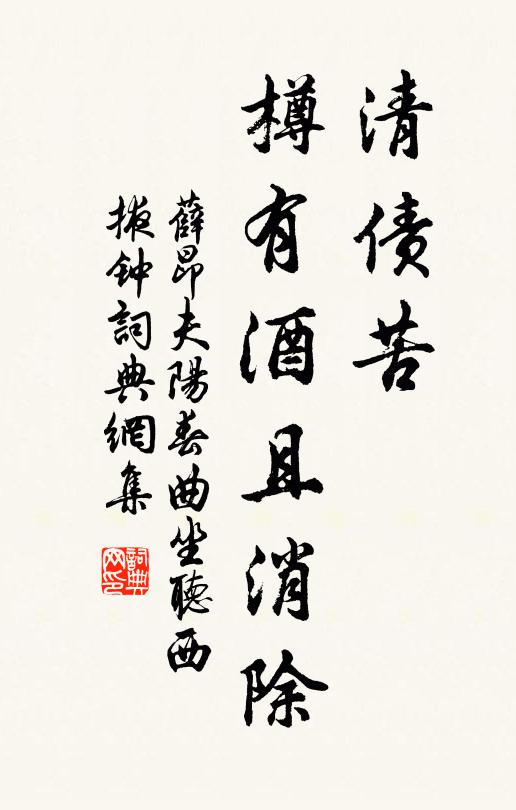 清債苦
樽有酒且消除
薛昂夫陽春曲坐聽西
掖钟詞典網集
詞典网印